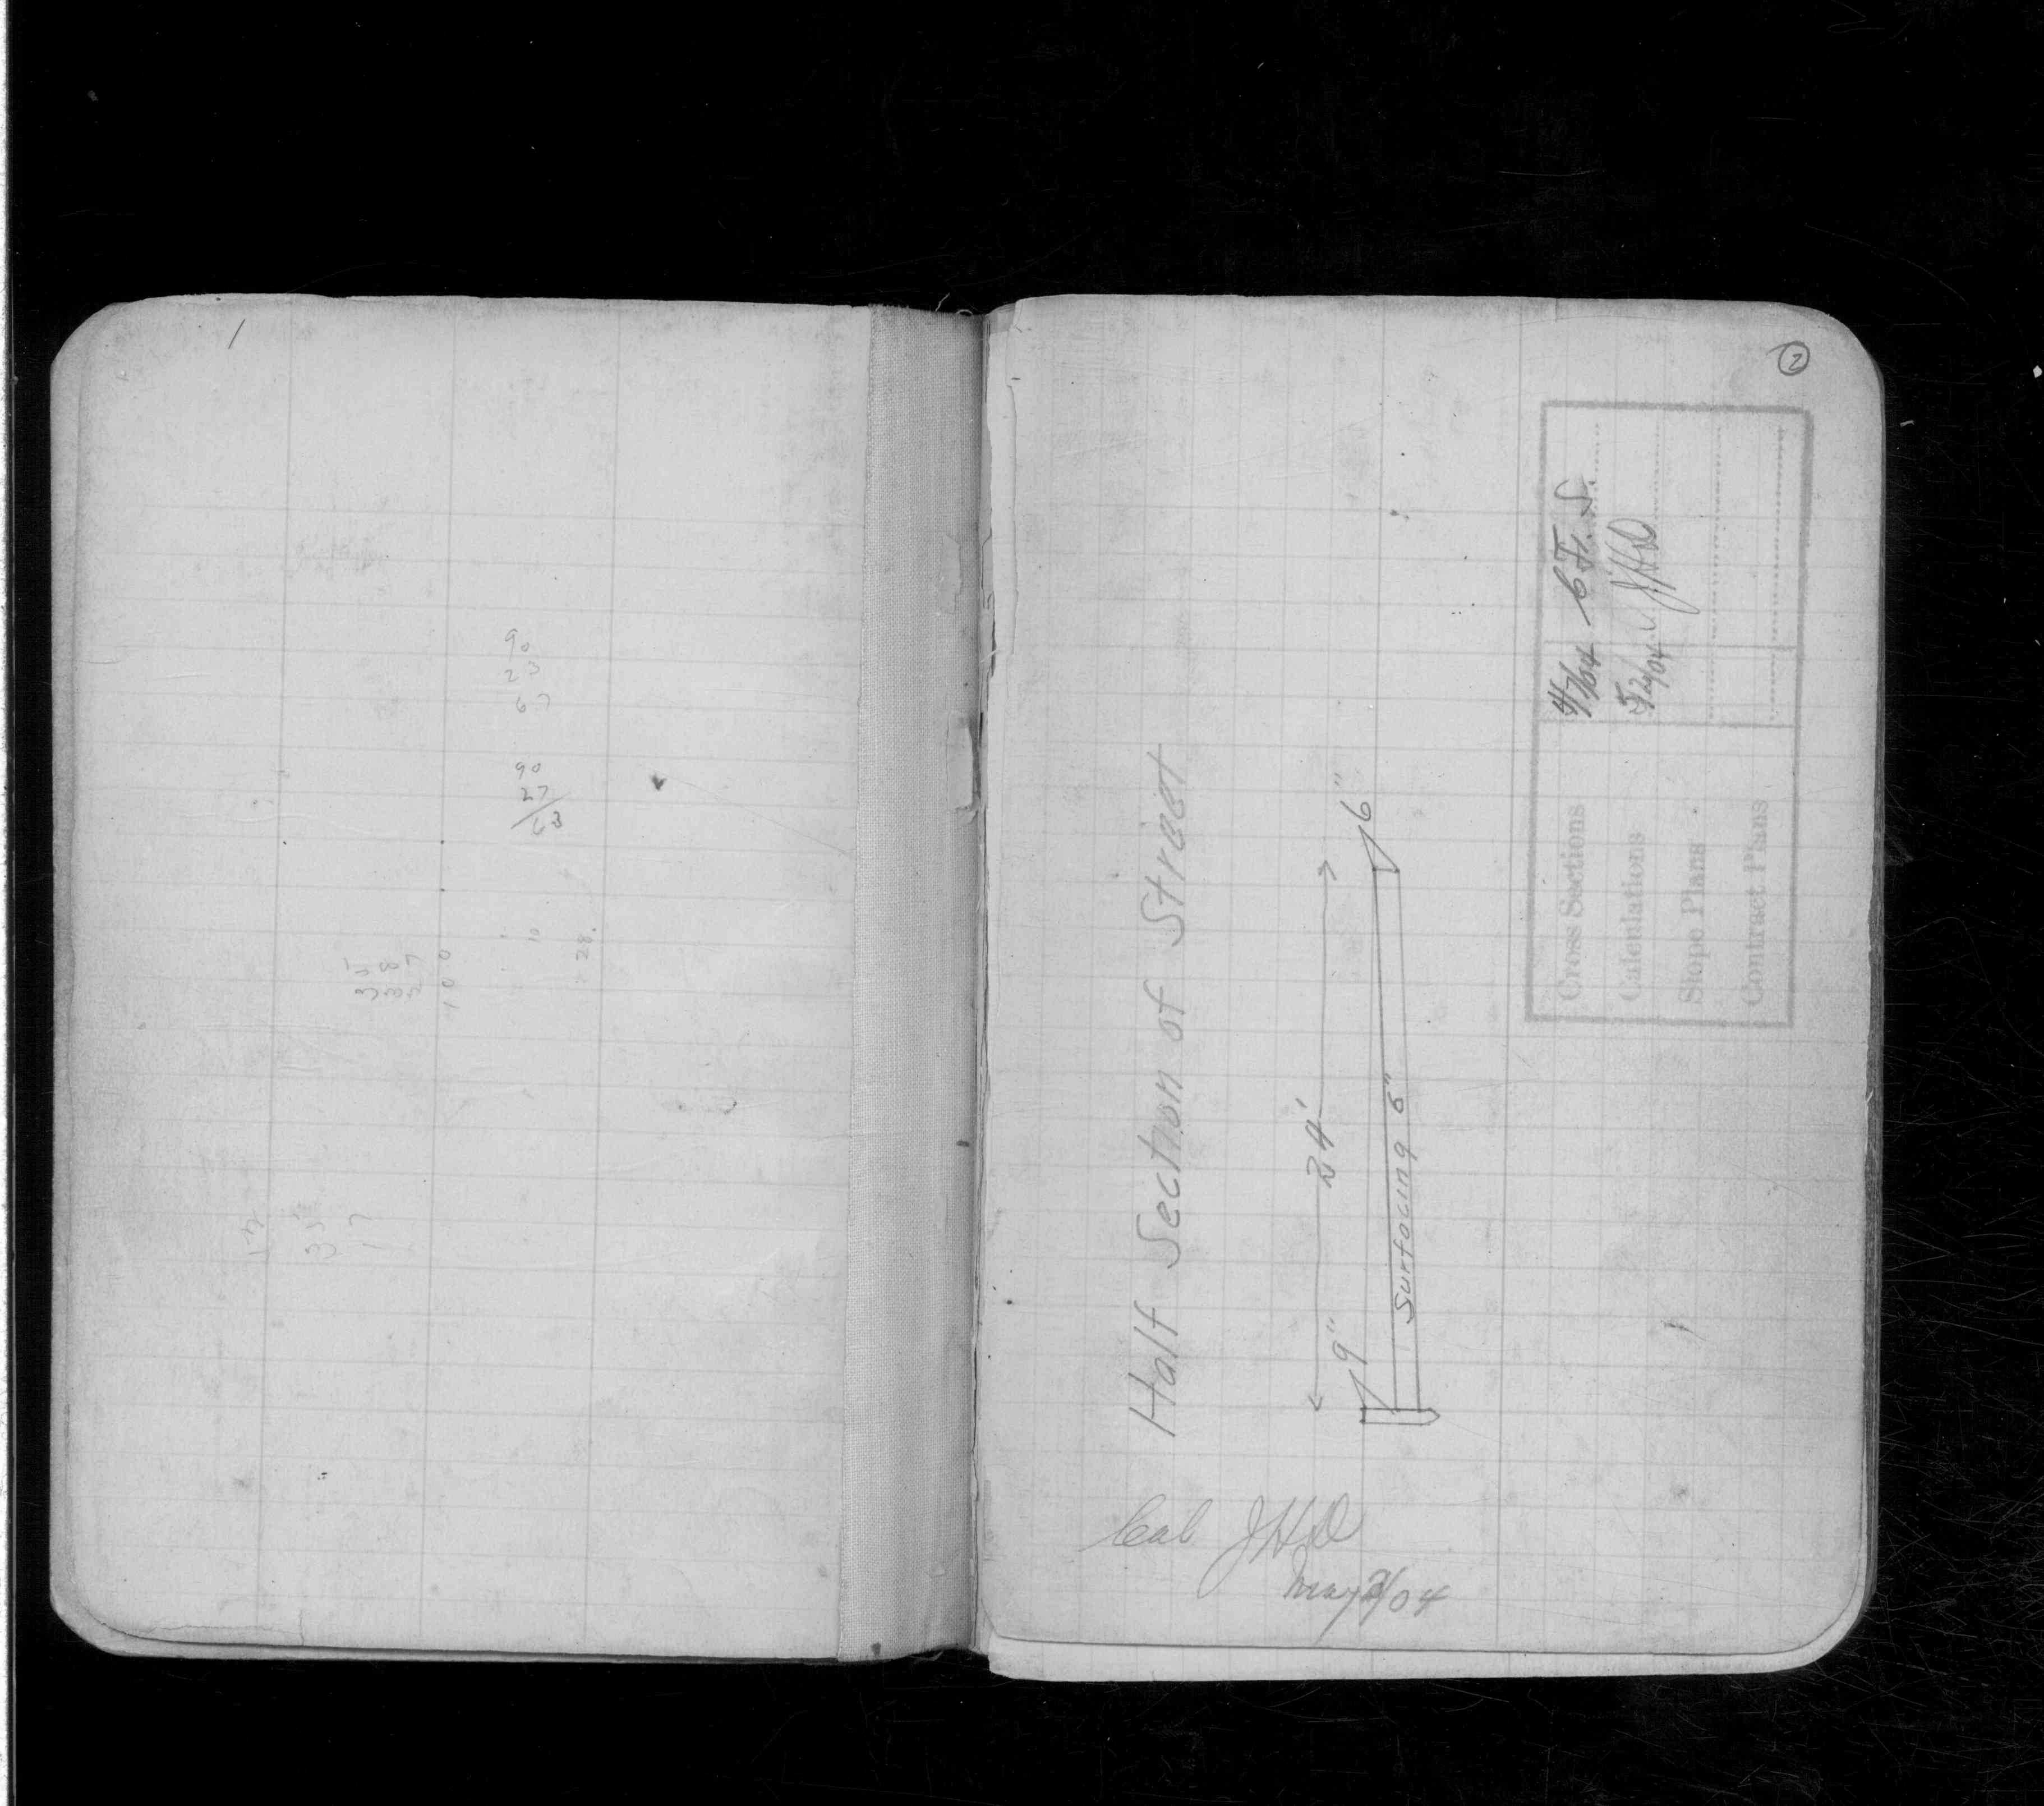 1
90
23
67
90
27
63
35
38
27
100
10
28.
35
17
2
Half Section of Street
24'
9"
6"
Surfacing 6"
Cross Sections 4/7/04 C.F.S.
Calculations 5/2/04 JHD
Slope Plans
Contract Plans
Cal JHD
May 2/04